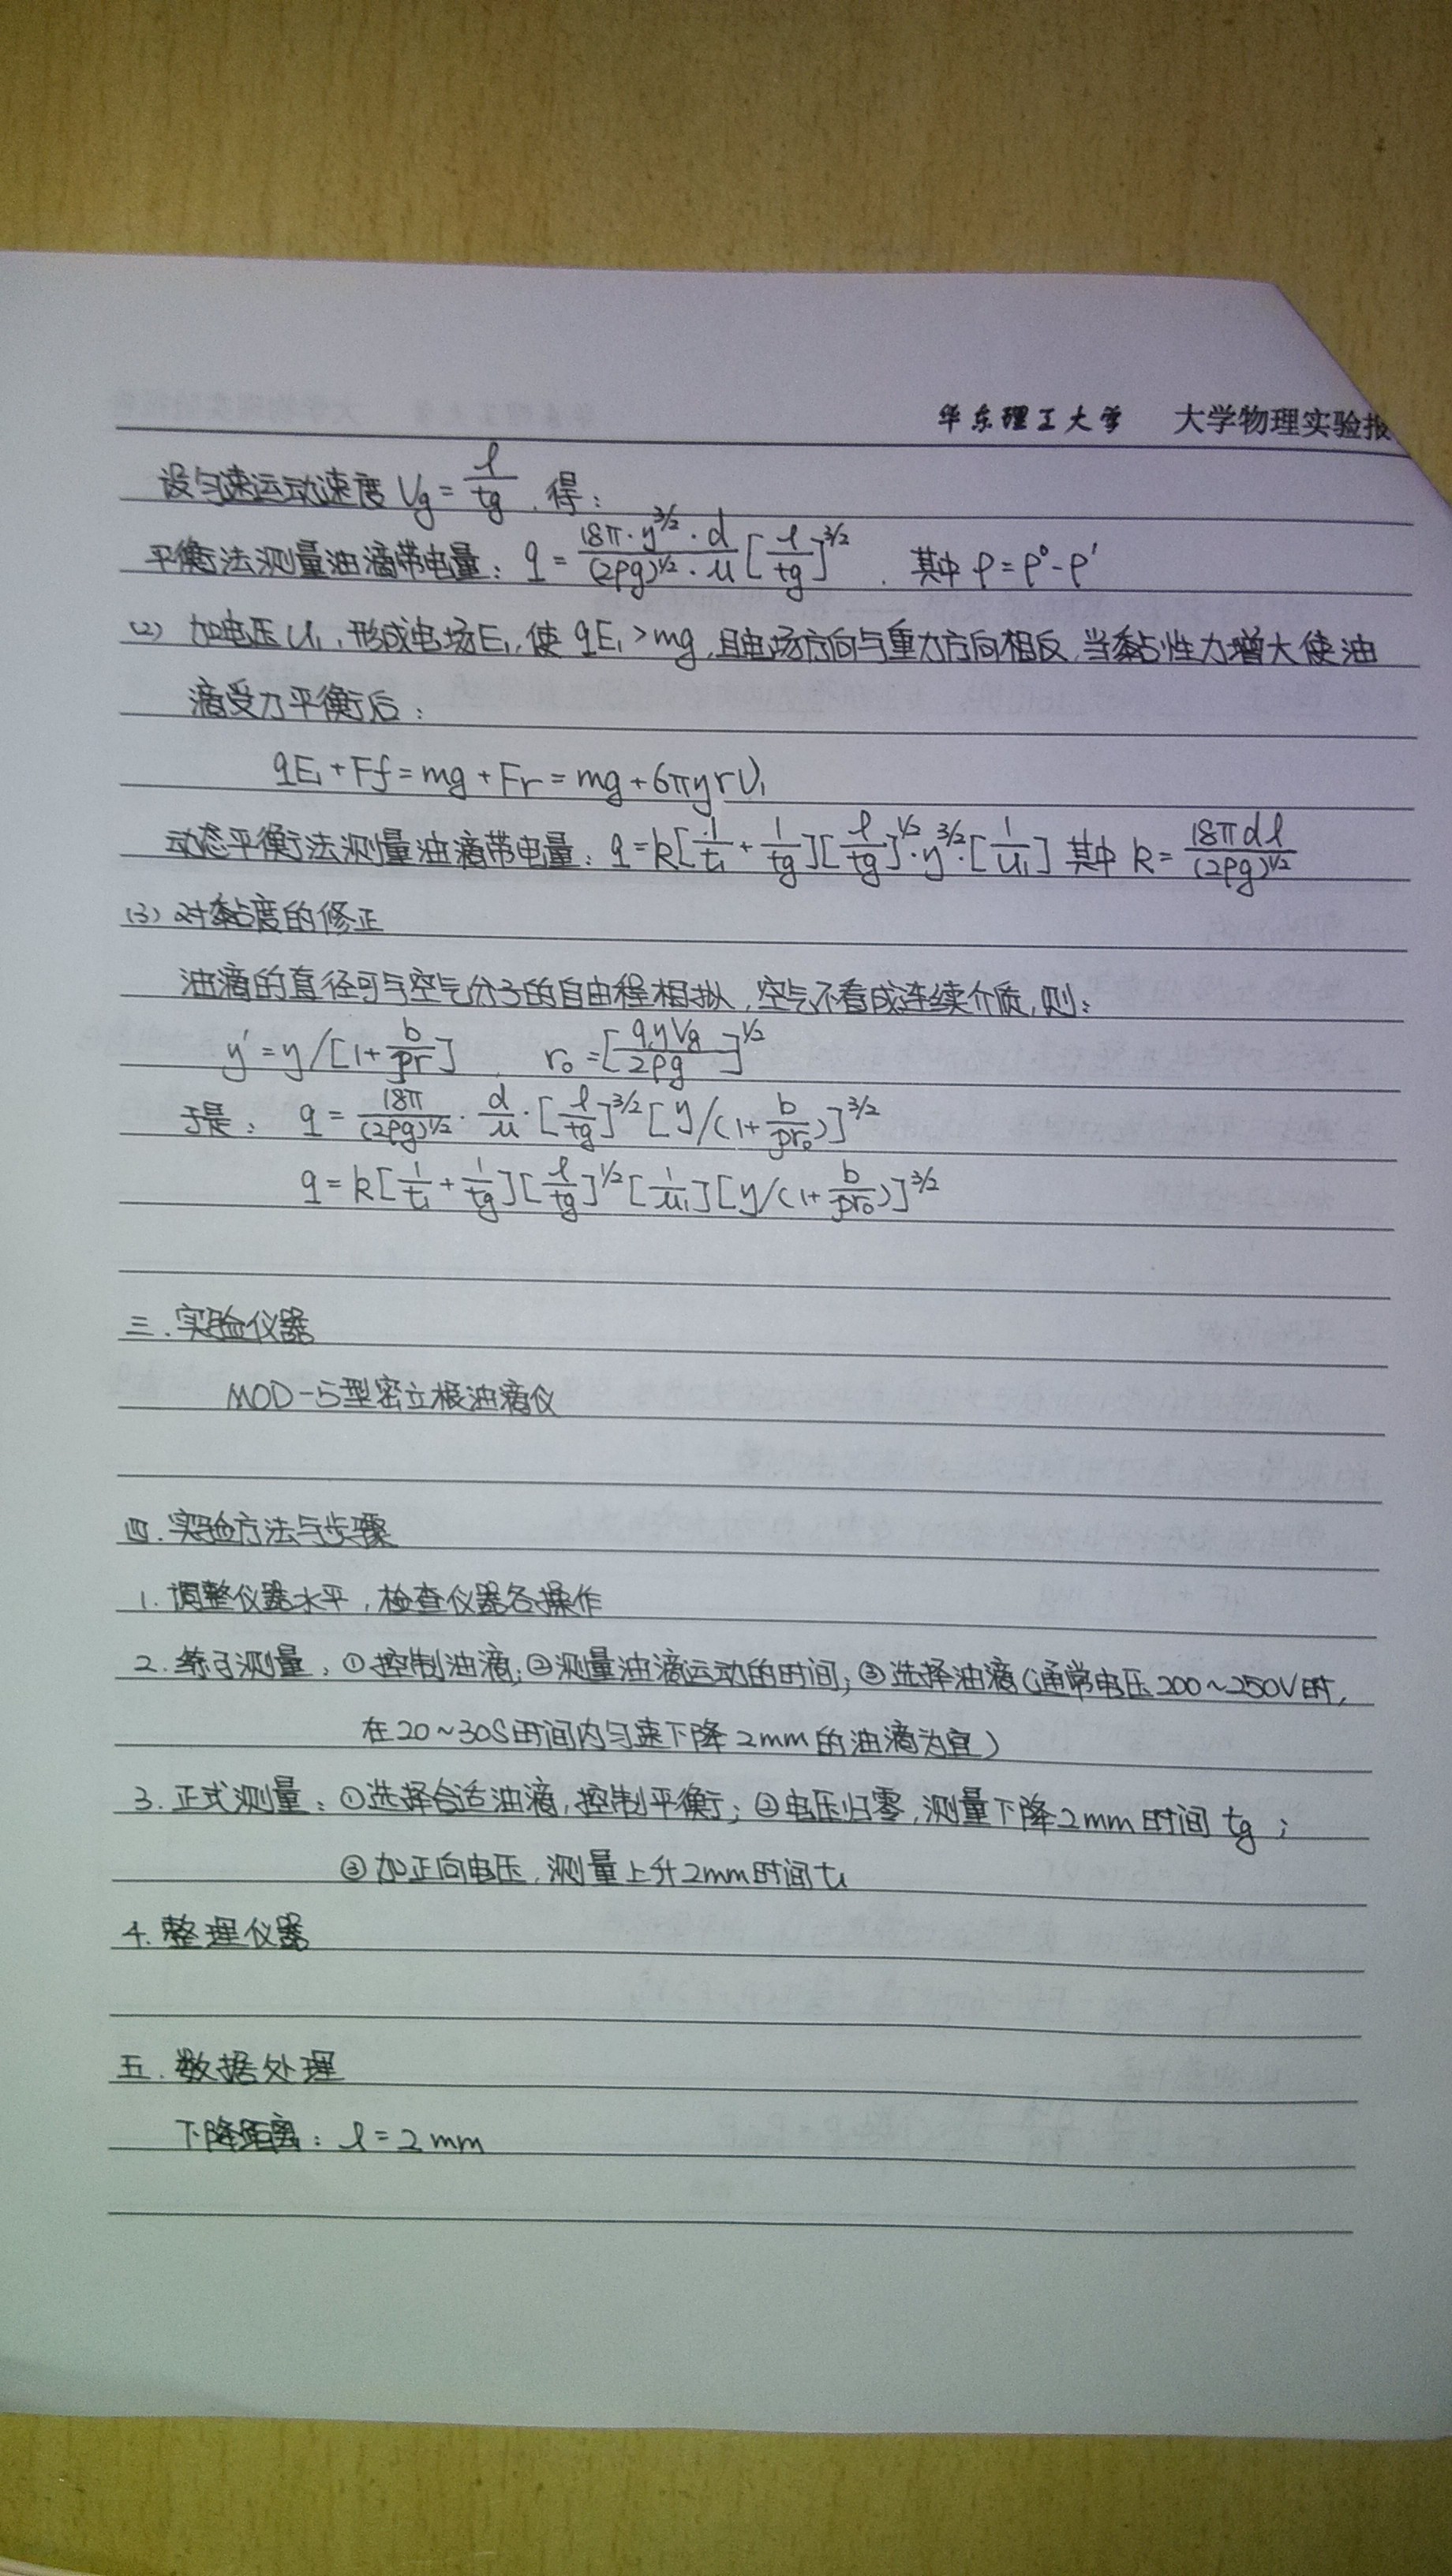 华东理工大学 大学物理实验报
设匀速运动速度 Vg = l/tg, 得:
平衡法测量油滴带电量: q = 18π·y^3/2·d / (2ρg)^1/2·u [l/tg]^3/2. 其中 ρ=ρ°-ρ'
(2) 加电压U₁, 形成电场E₁, 使 qE₁>mg, 且电场方向与重力方向相反, 当黏性力增大使油
滴受力平衡后:
qE₁+Ff=mg+Fr=mg+6πyrV₁
动态平衡法测量油滴带电量: q=k[1/t₁+1/tg][l/tg]^1/2·y^3/2·[1/u₁] 其中 k=18πdl/(2ρg)^1/2
(3) 对黏度的修正
油滴的直径可与空气分子的自由程相拟, 空气不看成连续介质, 则:
y'=y/[1+b/pr], r₀=[9yVg/2ρg]^1/2
于是: q=18π/(2ρg)^1/2·d/u·[l/tg]^3/2[y/(1+b/pr₀)]^3/2
q=k[1/t₁+1/tg][l/tg]^1/2[1/u₁][y/(1+b/pr₀)]^3/2
三. 实验仪器
MOD-5型密立根油滴仪
四. 实验方法与步骤
1. 调整仪器水平, 检查仪器各操作
2. 练习测量: ①控制油滴; ②测量油滴运动的时间; ③选择油滴(通常电压200~250V时,
在20~30S时间内匀速下降2mm的油滴为宜)
3. 正式测量: ①选择合适油滴, 控制平衡; ②电压归零, 测量下降2mm时间 tg;
③加正向电压, 测量上升2mm时间t₁
4. 整理仪器
五. 数据处理
下降距离: l=2mm